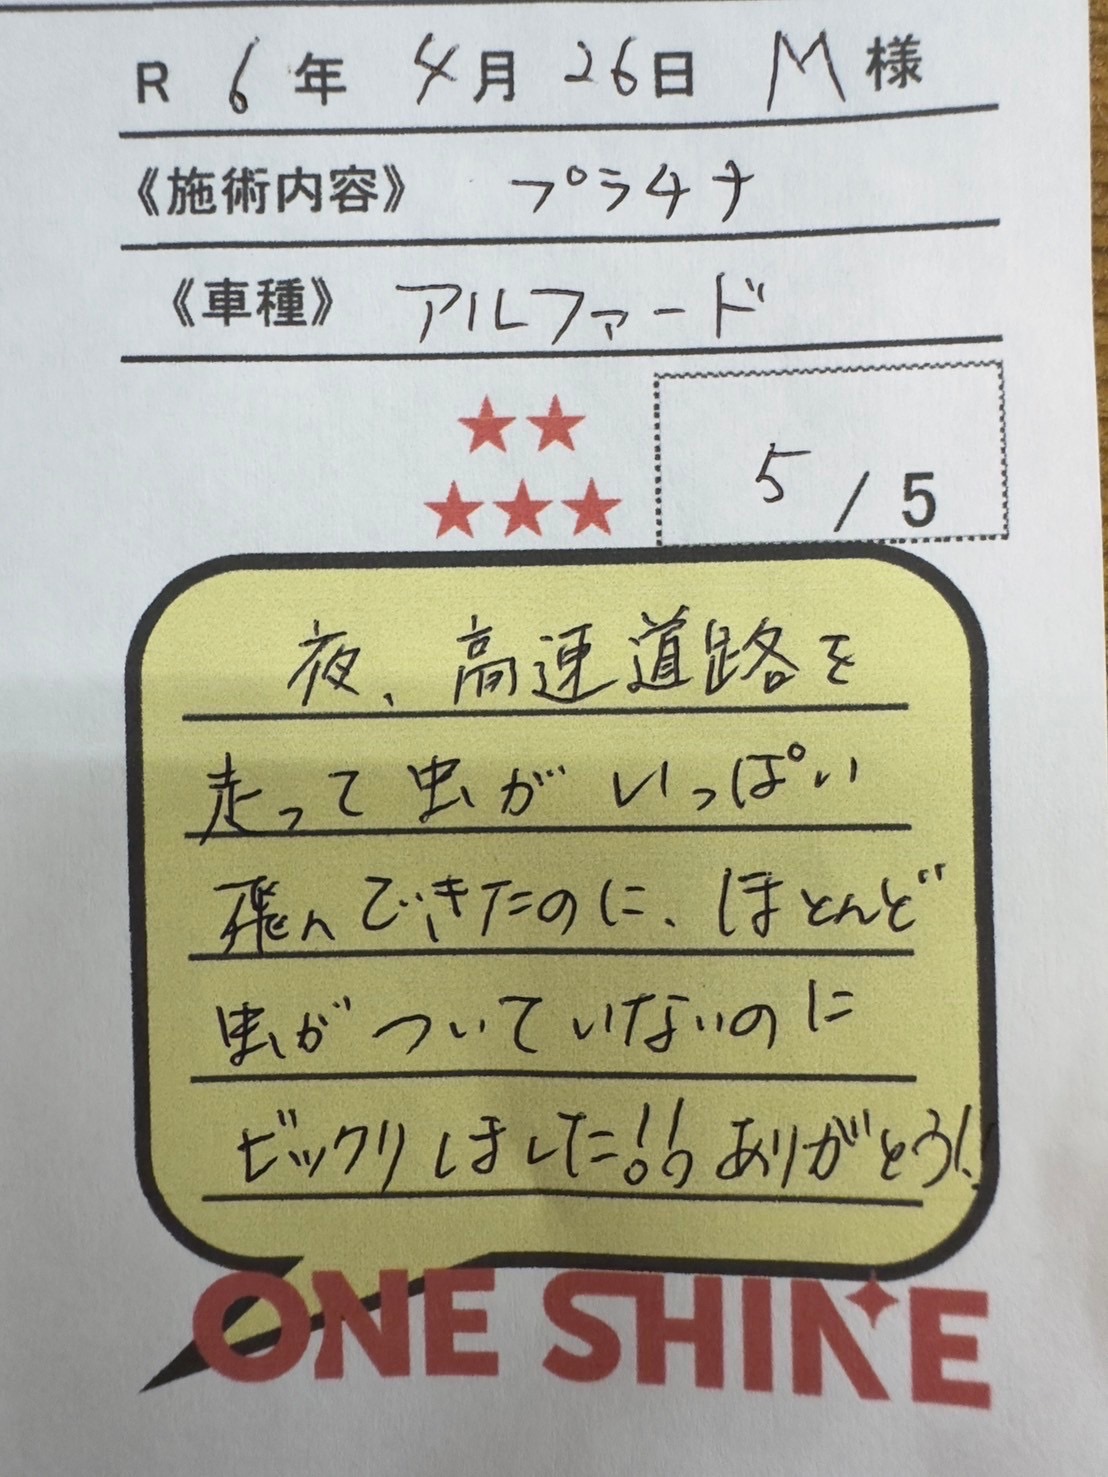 R 6年 4月 26日 M様
《施術内容》 プラチナ
《車種》 アルファード
5 / 5
夜、高速道路を
走って虫がいっぱい
飛んできたのに、ほとんど
虫がついていないのに
ビックリしました!! ありがとう!
ONE SHINE